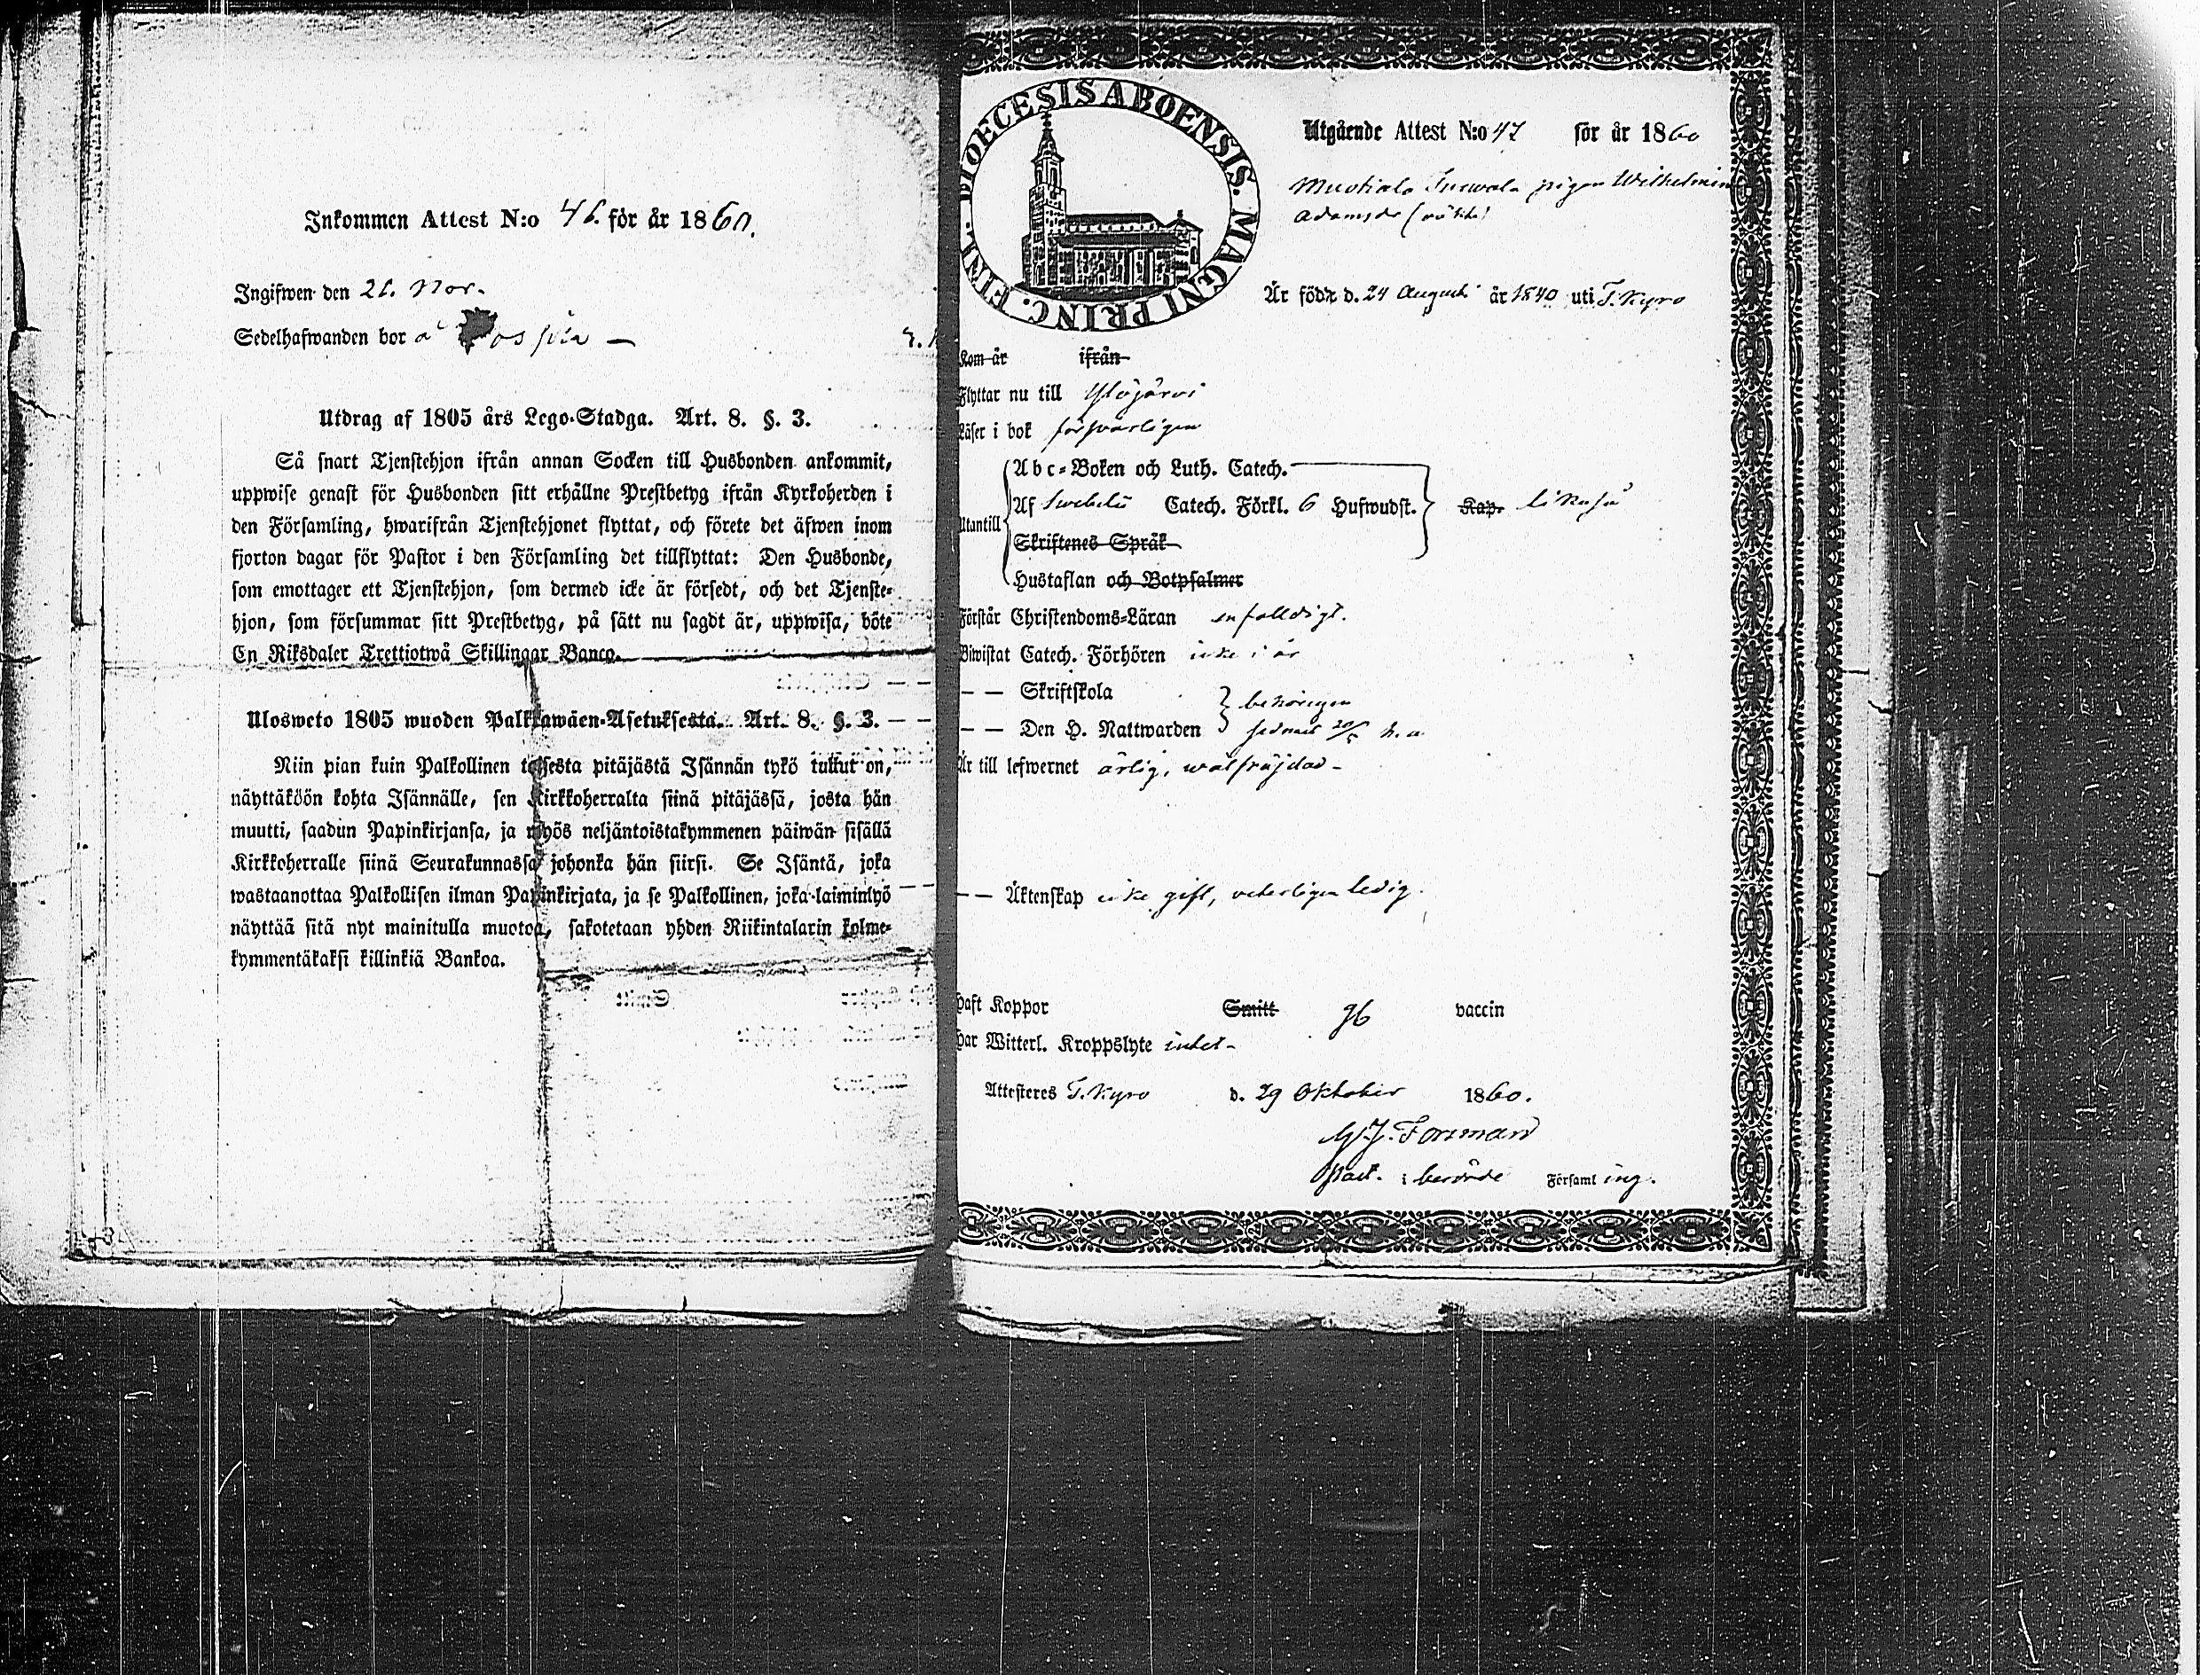 Inkommen Attest N:o 46. för år 1860.
Ingifwen den 21. Nov.
Sedelhafwanden bor å
Utdrag af 1805 års Lego-Stadga. Art. 8. §. 3.
Så snart Tjenstehjon ifrån annan Socken till Husbonden ankommit,
uppwise genast för Husbonden sitt erhållne Prestbetyg ifrån Kyrkoherden i
den Församling, hwarifrån Tjenstehjonet flyttat, och förete det äfwen inom
fjorton dagar för Pastor i den Församling det tillflyttat: Den Husbonde,
som emottager ett Tjenstehjon, som dermed icke är försedt, och det Tjenste-
hjon, som försummar sitt Prestbetyg, på sätt nu sagdt är, uppwisa, böte
En Riksdaler Trettiotwå Skillingar Banco.
Ulosweto 1805 wuoden Palkkawäen-Asetuksesta. Art. 8. §. 3.
Niin pian kuin Palkollinen toisesta pitäjästä Isännän tykö tullut on,
näyttäköön kohta Isännälle, sen Kirkkoherralta siinä pitäjässä, josta hän
muutti, saadun Papinkirjansa, ja myös neljäntoistakymmenen päiwän sisällä
Kirkkoherralle siinä Seurakunnassa johonka hän siirsi. Se Isäntä, joka
wastaanottaa Palkollisen ilman Papinkirjata, ja se Palkollinen, joka laiminlyö
näyttää sitä nyt mainitulla muotoa, sakotetaan yhden Riikintalarin kolme-
kymmentäkaksi killinkiä Bankoa.
DIOECESIS ABOENSIS. MAGNI PRINC. FINL.
Utgående Attest N:o 47 för år 1860
pigan Wilhelmin
Adamsdr
Är född d. 24 Augusti år 1840 uti T. Kyro
Kom år ifrån
Flyttar nu till Ylöjärvi
Läser i bok försvarligen
Abc-Boken och Luth. Catech.
Af Swebelii Catech. Förkl. 6 Hufwudst. Kap. likaså
Utantill
Skriftenes Språk
Hustaflan och Botpsalmer
Förstår Christendoms-Läran enfalldigt.
Biwistat Catech. Förhören icke i år
— — Skriftskola behörigen
— — Den H. Nattwarden sednast h. a.
Är till lefwernet ärlig, wälfräjdad -
— — Äktenskap icke gift, veterligen ledig.
Haft Koppor Smitt gb vaccin
Har Witterl. Kroppslyte intet -
Attesteres T. Kyro d. 29 Oktober 1860.
Forsman
Past. i berörde Församl ing.